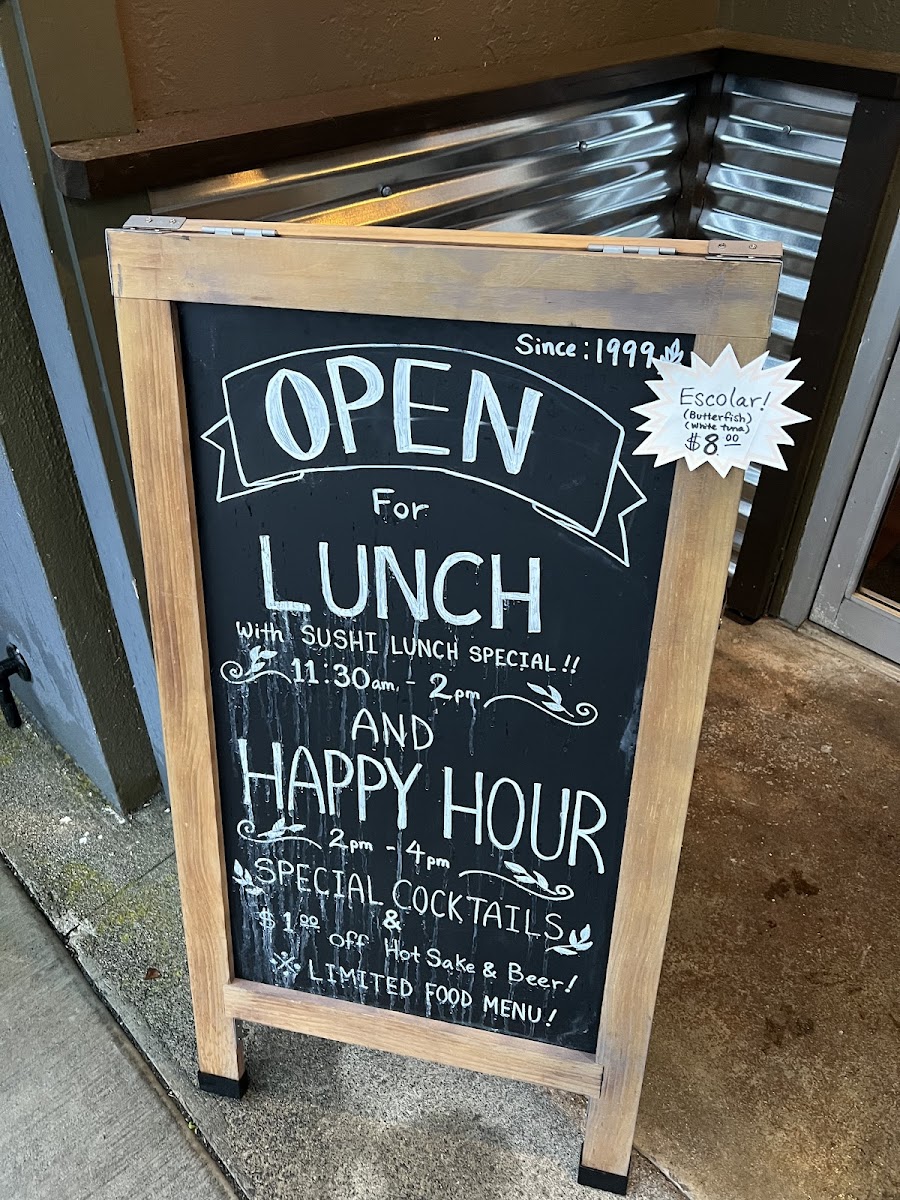 Since: 1999
OPEN
Escolar!
(Butterfish)
(White tuna)
$8.00
For
LUNCH
With SUSHI LUNCH SPECIAL!!
11:30am. - 2pm
AND
HAPPY HOUR
2pm - 4pm
SPECIAL COCKTAILS
&
$1.00 off Hot Sake & Beer!
※ LIMITED FOOD MENU!